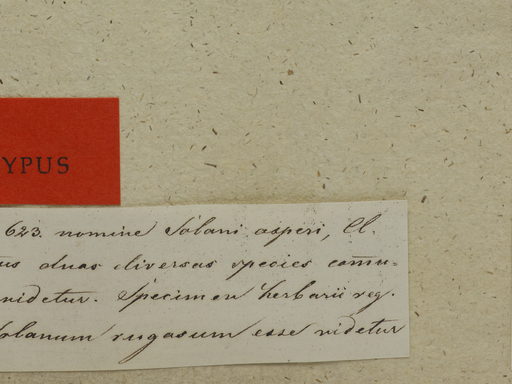 YPUS
623. nomine Solani asperi, Cl.
us duas diversas species comu-
videtur. Specimen herbarii reg.
olanum rugosum esse videtur